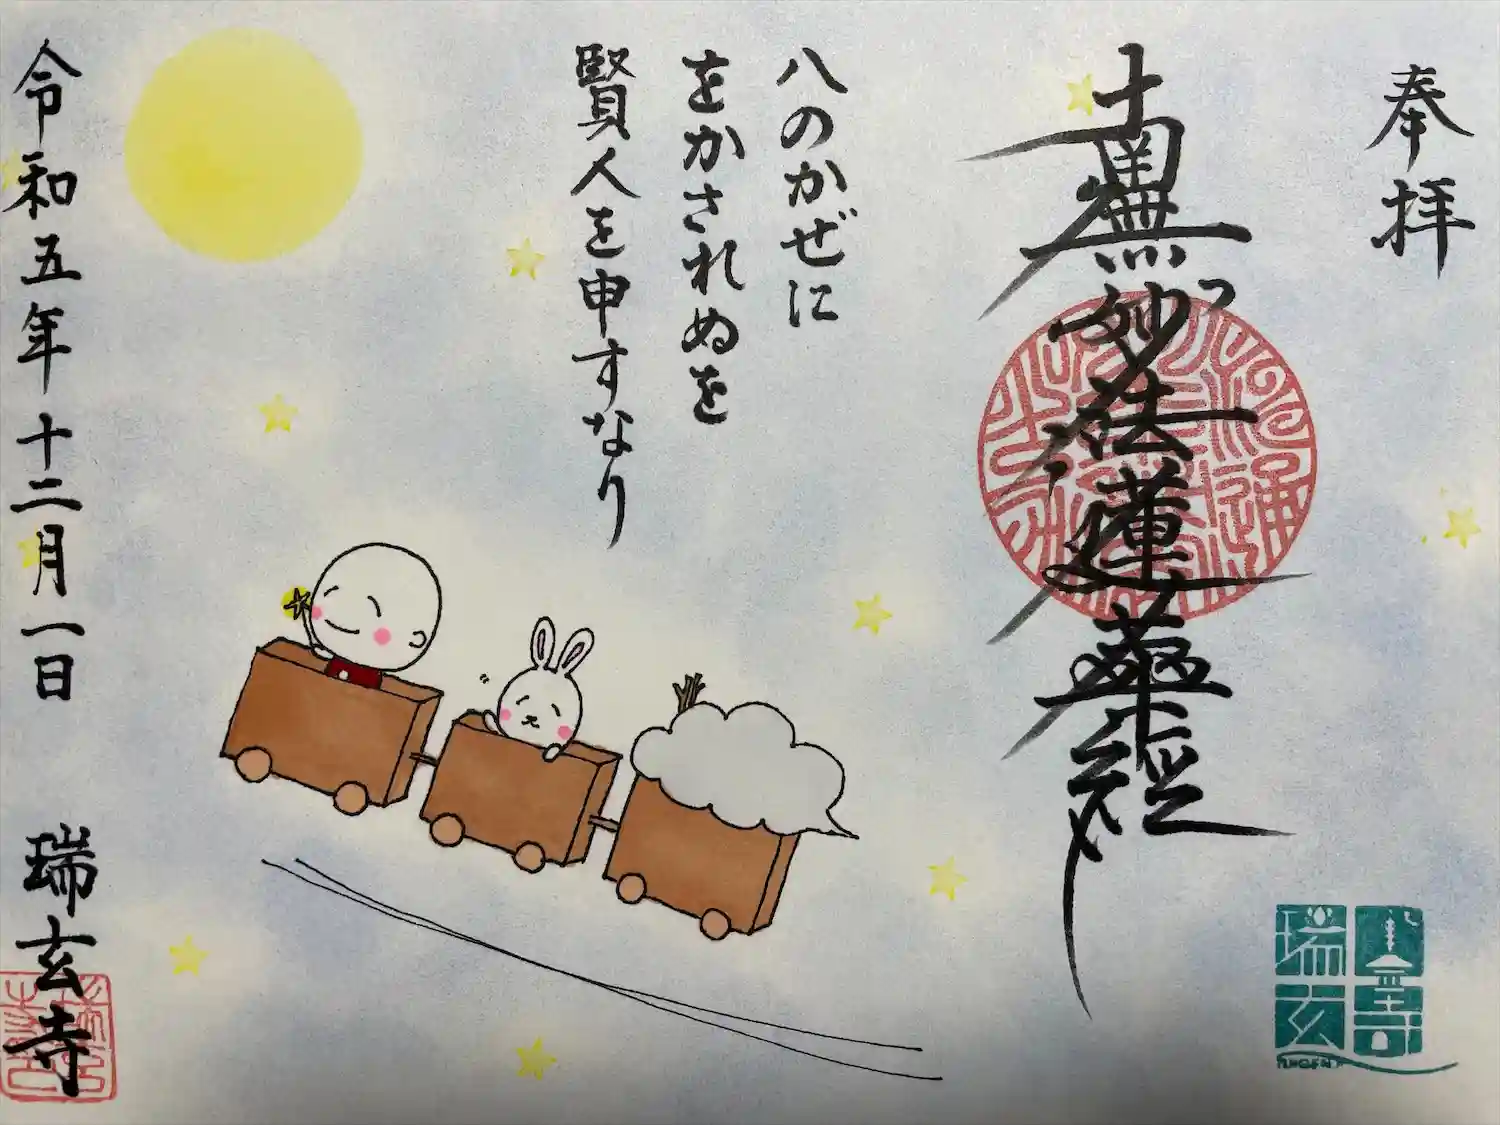 奉拝
南無妙法蓮華経
八のかぜに
をかされぬを
賢人を申すなり
令和五年十二月一日 瑞玄寺
瑞玄寺